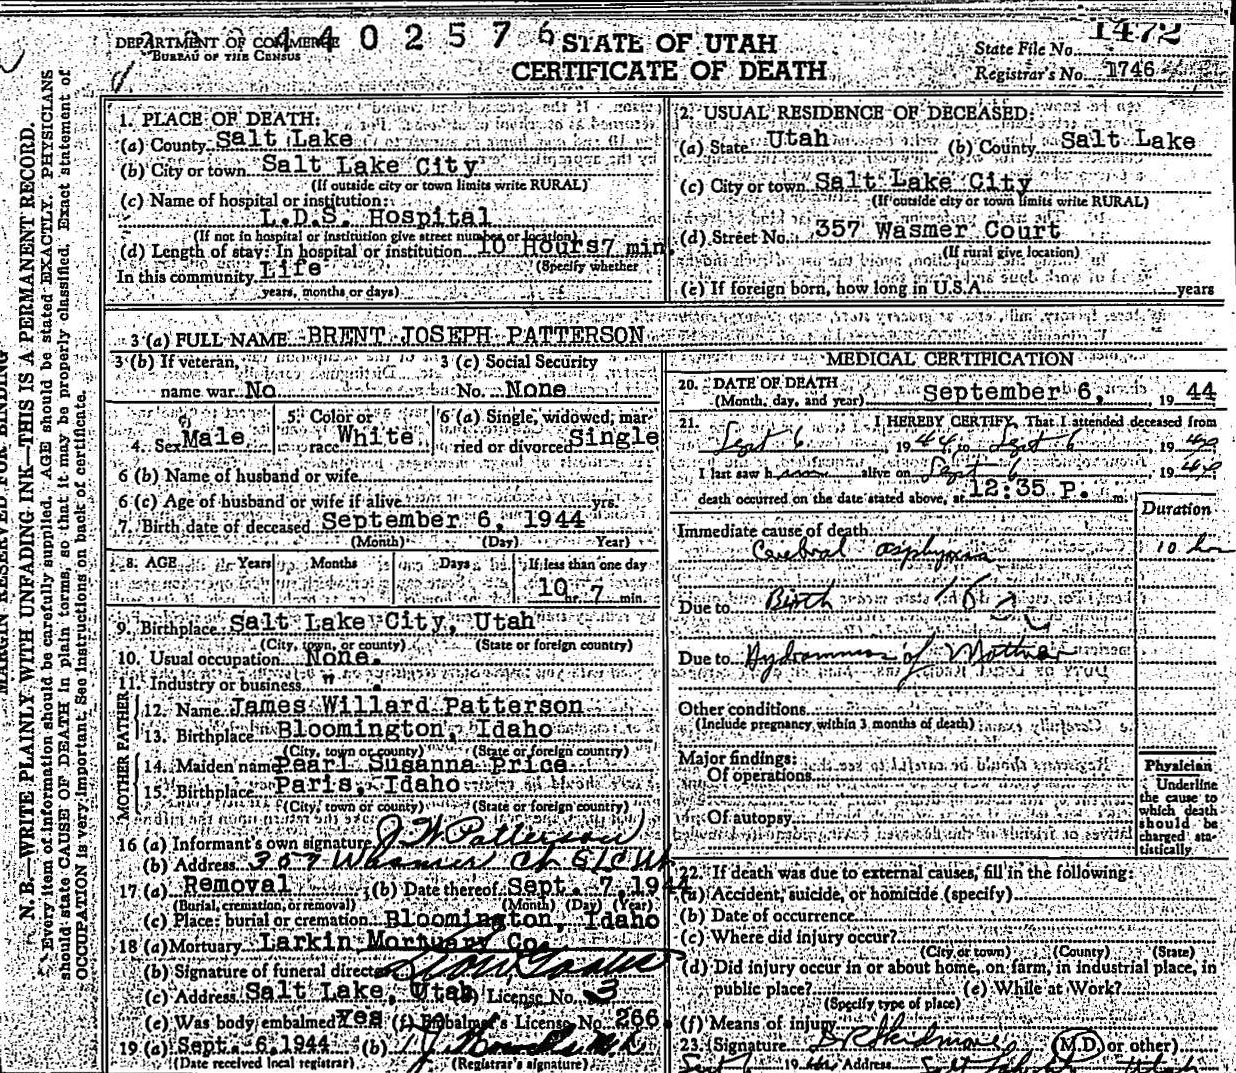 DEPARTMENT OF COMMERCE
BUREAU OF THE CENSUS
4 4 0 2 5 7 6
STATE OF UTAH
CERTIFICATE OF DEATH
State File No. 1472
Registrar's No. 1746
N. B.—WRITE PLAINLY WITH UNFADING INK—THIS IS A PERMANENT RECORD.
Every item of information should be carefully supplied. AGE should be stated EXACTLY. PHYSICIANS
should state CAUSE OF DEATH in plain terms, so that it may be properly classified. Exact statement of
OCCUPATION is very important. See instructions on back of certificate.
1. PLACE OF DEATH:
(a) County Salt Lake
(b) City or town Salt Lake City
(If outside city or town limits write RURAL)
(c) Name of hospital or institution:
L.D.S. Hospital
(If not in hospital or institution give street number or location)
(d) Length of stay: In hospital or institution 10 Hours 7 min
(Specify whether
In this community Life
years, months or days)
2. USUAL RESIDENCE OF DECEASED:
(a) State Utah (b) County Salt Lake
(c) City or town Salt Lake City
(If outside city or town limits write RURAL)
(d) Street No. 357 Wasmer Court
(If rural give location)
(e) If foreign born, how long in U.S.A. years
3 (a) FULL NAME BRENT JOSEPH PATTERSON
3 (b) If veteran, 3 (c) Social Security
name war No No. None
4. Sex Male 5. Color or race White 6 (a) Single, widowed, married or divorced Single
6 (b) Name of husband or wife
6 (c) Age of husband or wife if alive yrs.
7. Birth date of deceased September 6, 1944
(Month) (Day) Year)
8. AGE Years Months Days If less than one day
10 hr. 7 min.
9. Birthplace Salt Lake City, Utah
(City, town, or county) (State or foreign country)
10. Usual occupation None.
11. Industry or business " .
FATHER
12. Name James Willard Patterson
13. Birthplace Bloomington, Idaho
(City, town or county) (State or foreign country)
MOTHER
14. Maiden name Pearl Susanna Price
15. Birthplace Paris, Idaho
(City, town or county) (State or foreign country)
16 (a) Informant's own signature J W Patterson
(b) Address 357 Wasmer Ct SLC Ut
17 (a) Removal (b) Date thereof Sept. 7, 1944
(Burial, cremation, or removal) (Month) (Day) (Year)
(c) Place: burial or cremation Bloomington, Idaho
18 (a) Mortuary Larkin Mortuary Co.
(b) Signature of funeral director
(c) Address Salt Lake, Utah License No. 3
(e) Was body embalmed Yes (f) Embalmer's License No. 266
19 (a) Sept. 6, 1944 (b)
(Date received local registrar) (Registrar's signature)
MEDICAL CERTIFICATION
20. DATE OF DEATH
(Month, day, and year) September 6, 19 44
21. I HEREBY CERTIFY, That I attended deceased from
Sept 6, 19 44, to Sept 6, 19 44
I last saw h alive on Sept 6, 19 44
death occurred on the date stated above, at 12:35 P. m.
Duration
Immediate cause of death
Cerebral asphyxia 10 hr
Due to Birth
Due to Hydramnios of Mother
Other conditions
(Include pregnancy within 3 months of death)
Major findings:
Of operations
Of autopsy
Physician
Underline
the cause to
which death
should be
charged sta-
tistically
22. If death was due to external causes, fill in the following:
(a) Accident, suicide, or homicide (specify)
(b) Date of occurrence
(c) Where did injury occur?
(City or town) (County) (State)
(d) Did injury occur in or about home, on farm, in industrial place, in
public place? (e) While at Work?
(Specify type of place)
(f) Means of injury
23. (Signature Skidmore (M.D. or other)
Sept 6 19 44 Address Salt Lake Utah